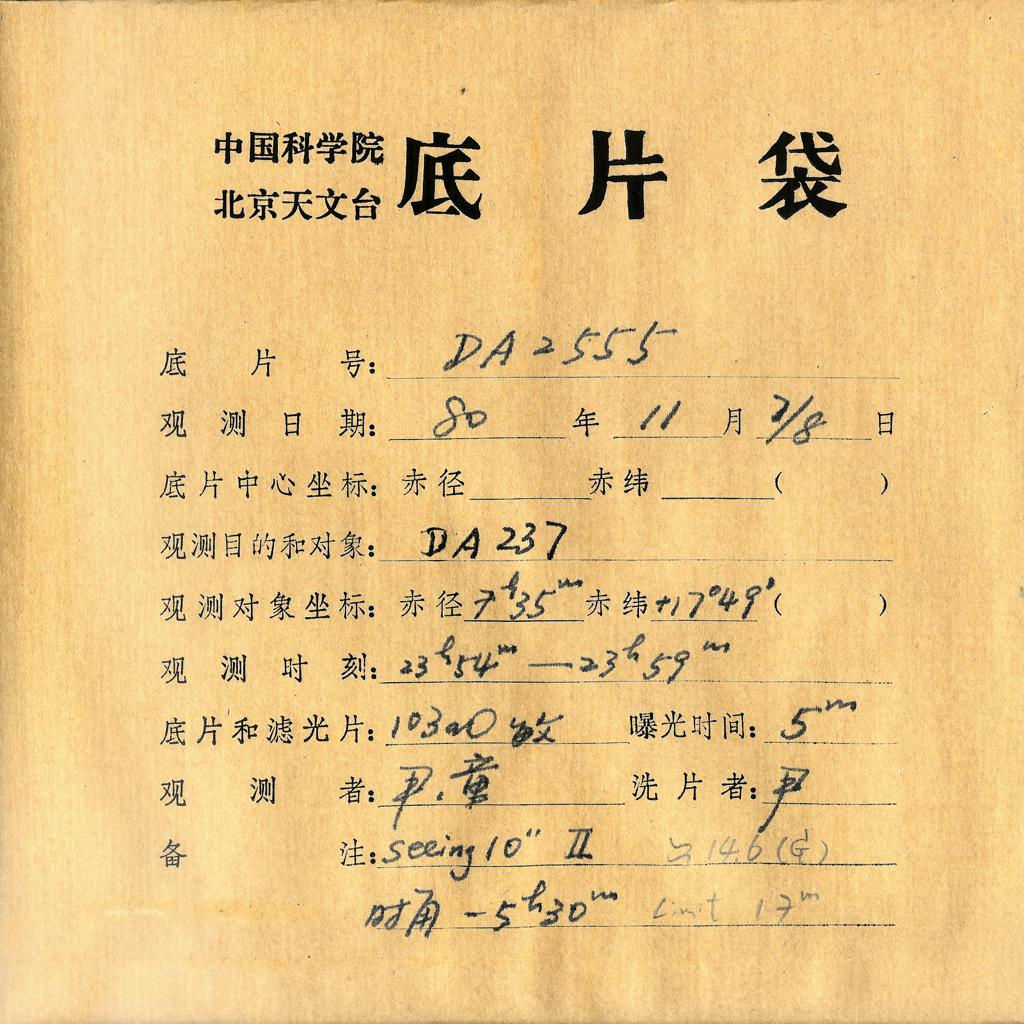 中国科学院
北京天文台
底片袋
底片号: DA2555
观测日期: 80 年 11 月 7/8 日
底片中心坐标: 赤径 赤纬 ( )
观测目的和对象: DA237
观测对象坐标: 赤径 7h35m 赤纬 +17°49′ ( )
观测时刻: 23h54m—23h59m
底片和滤光片: 103aO 敏 曝光时间: 5m
观测者: 尹.童 洗片者: 尹
备注: seeing 10″ II 14.6(G)
时角 -5h30m Limit 17m